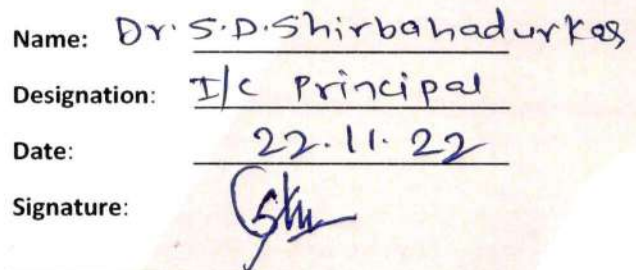 Name: Dr. S.D. Shirbahadurkar
Designation: I/C Principal
Date: 22.11.22
Signature: